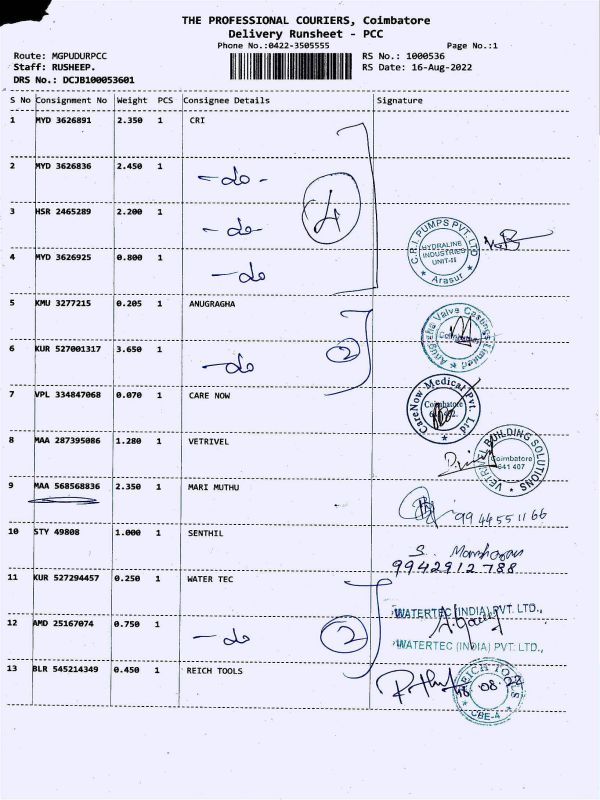 THE PROFESSIONAL COURIERS, Coimbatore
Delivery Runsheet - PCC
Phone No.:0422-3505555 Page No.:1
Route: MGPUDURPCC RS No.: 1000536
Staff: RUSHEEP. RS Date: 16-Aug-2022
DRS No.: DCJB100053601
S No Consignment No Weight PCS Consignee Details Signature
1 MYD 3626891 2.350 1 CRI
2 MYD 3626836 2.450 1 -do-
3 HSR 2465289 2.200 1 -do-
4
4 MYD 3626925 0.800 1 -do
C.R.I. PUMPS PVT. LTD
HYDRALINE
INDUSTRIES
UNIT-II
* Arasur *
5 KMU 3277215 0.205 1 ANUGRAGHA
Anugraha Valve Castings Limited
Coimbatore
6 KUR 527001317 3.650 1 -do
2
7 VPL 334847068 0.070 1 CARE NOW
CareNow Medical Pvt. Ltd
Coimbatore
8 MAA 287395086 1.280 1 VETRIVEL
VETRIVEL BUILDING SOLUTIONS
Coimbatore
641 407
9 MAA 568568836 2.350 1 MARI MUTHU
9944551166
10 STY 49808 1.000 1 SENTHIL
S.
9942912788
11 KUR 527294457 0.250 1 WATER TEC
WATERTEC (INDIA) PVT. LTD.,
12 AMD 25167074 0.750 1 -do
2
WATERTEC (INDIA) PVT. LTD.,
13 BLR 545214349 0.450 1 REICH TOOLS
REICH TOOLS
08.22
* CBE-4 *